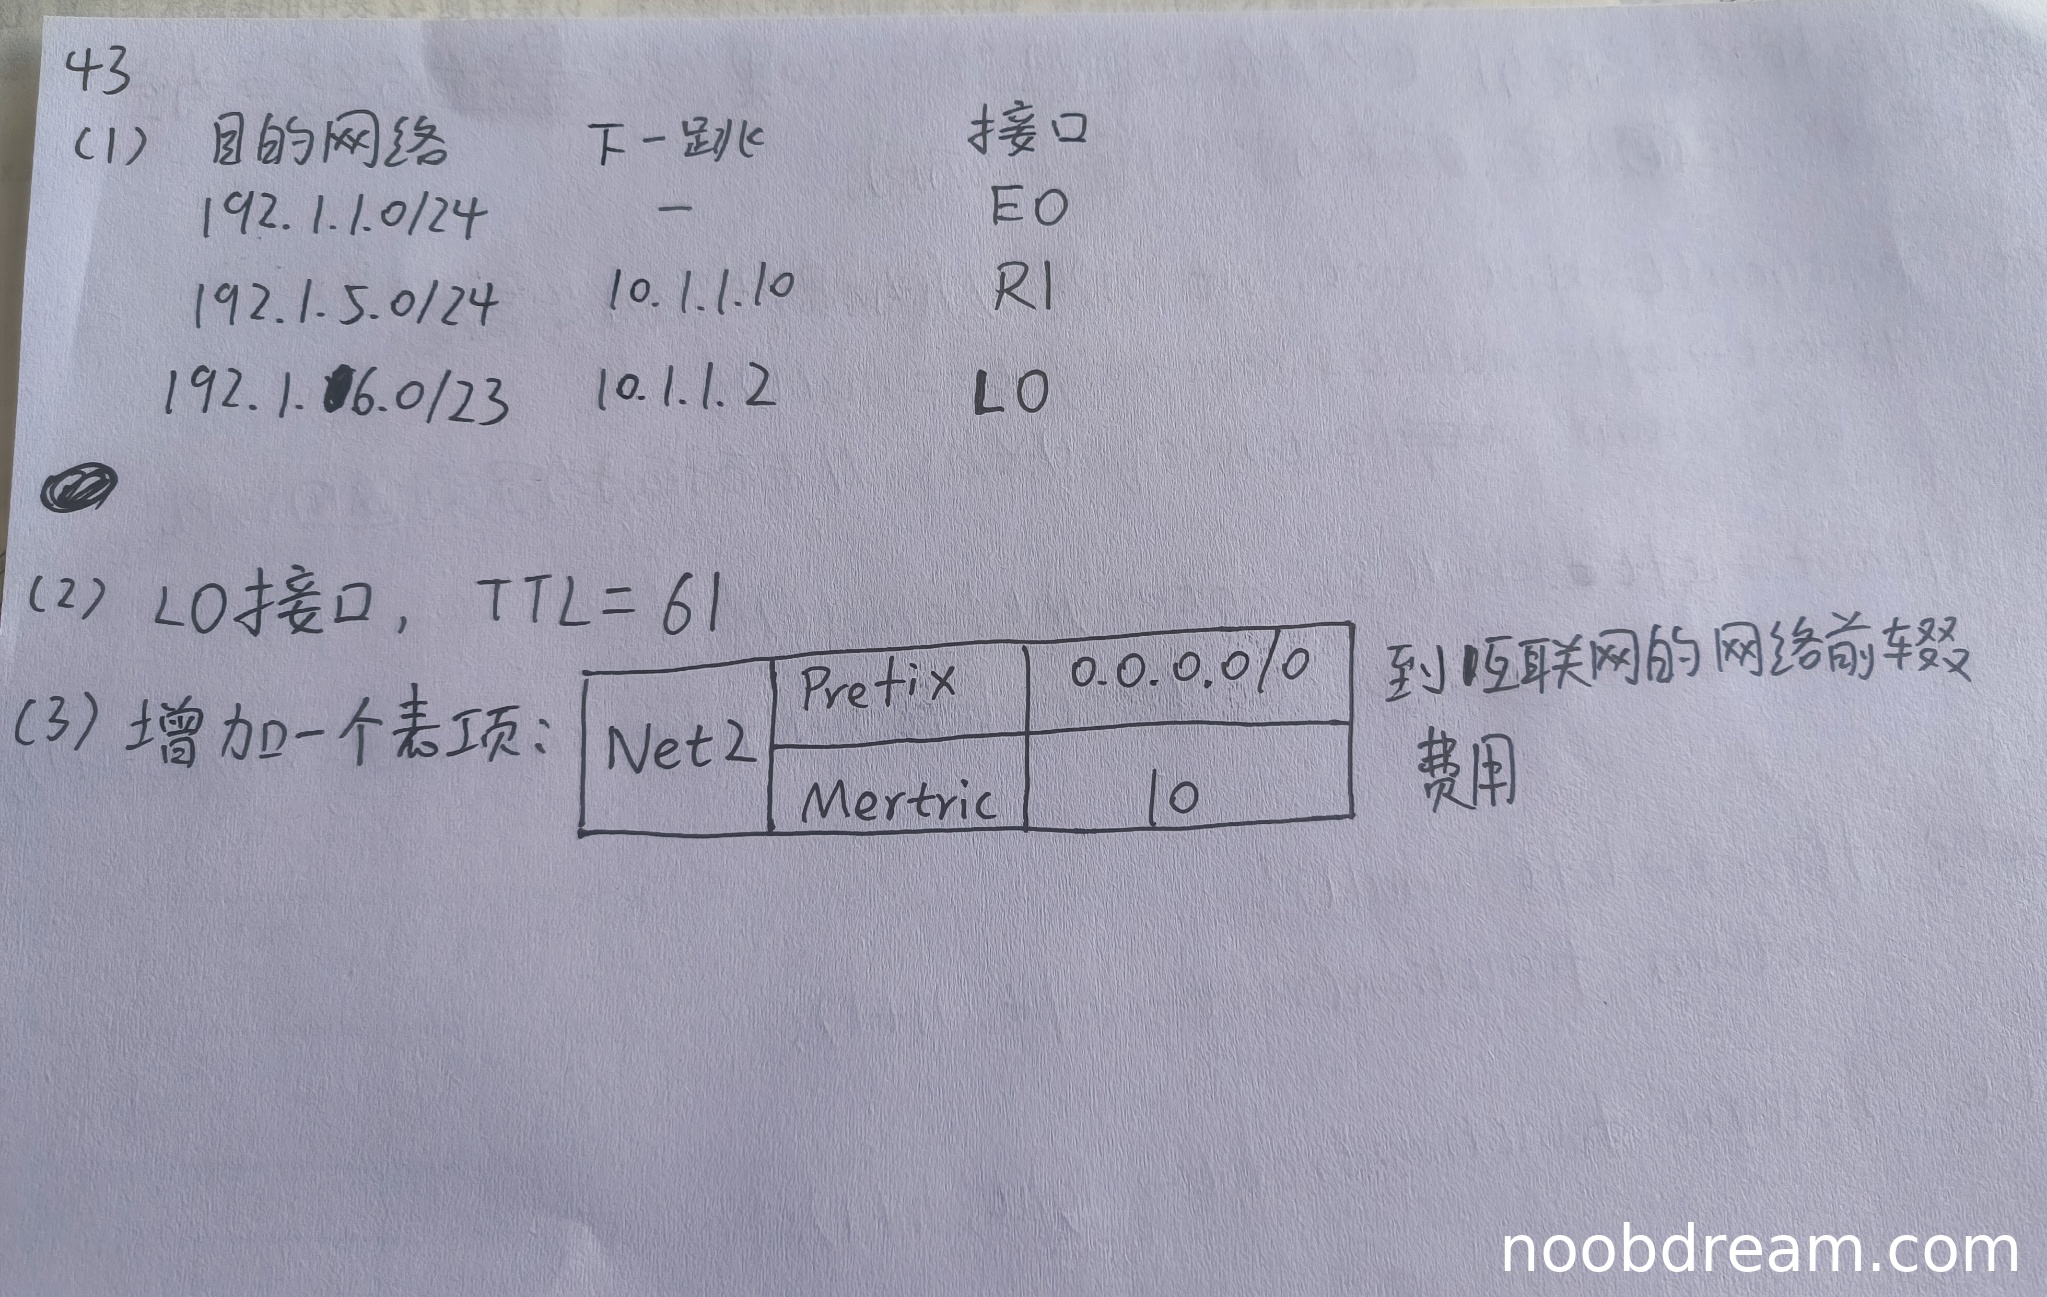 43
(1) 目的网络 下一跳 接口
192.1.1.0/24 — E0
192.1.5.0/24 10.1.1.10 R1
192.1.6.0/23 10.1.1.2 L0
(2) L0接口, TTL=61
(3) 增加一个表项: Net2 Prefix 0.0.0.0/0 到互联网的网络前缀
Mertric 10 费用
noobdream.com